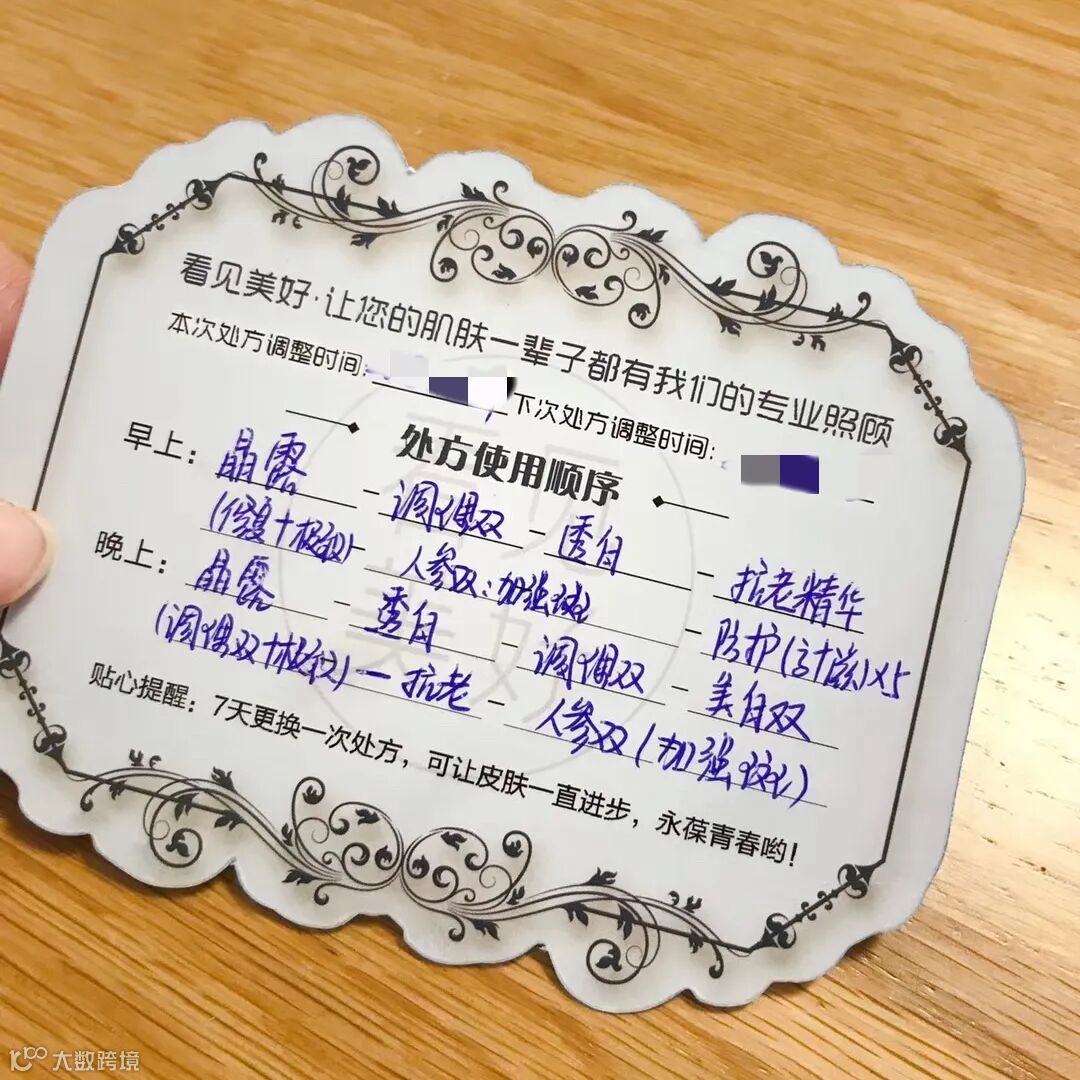 看见美好·让您的肌肤一辈子都有我们的专业照顾
本次处方调整时间: 下次处方调整时间:
处方使用顺序
早上: 晶露 - 调偶双 - 透白 - 抗老精华
(修复+极致) - 人参双:加强斑 - 防护()×5
晚上: 晶露 - 透白 - 调偶双 - 美白双
(调偶双+极致) - 抗老 - 人参双(加强斑)
贴心提醒: 7天更换一次处方，可让皮肤一直进步，永葆青春哟!
看见美好
大数跨境